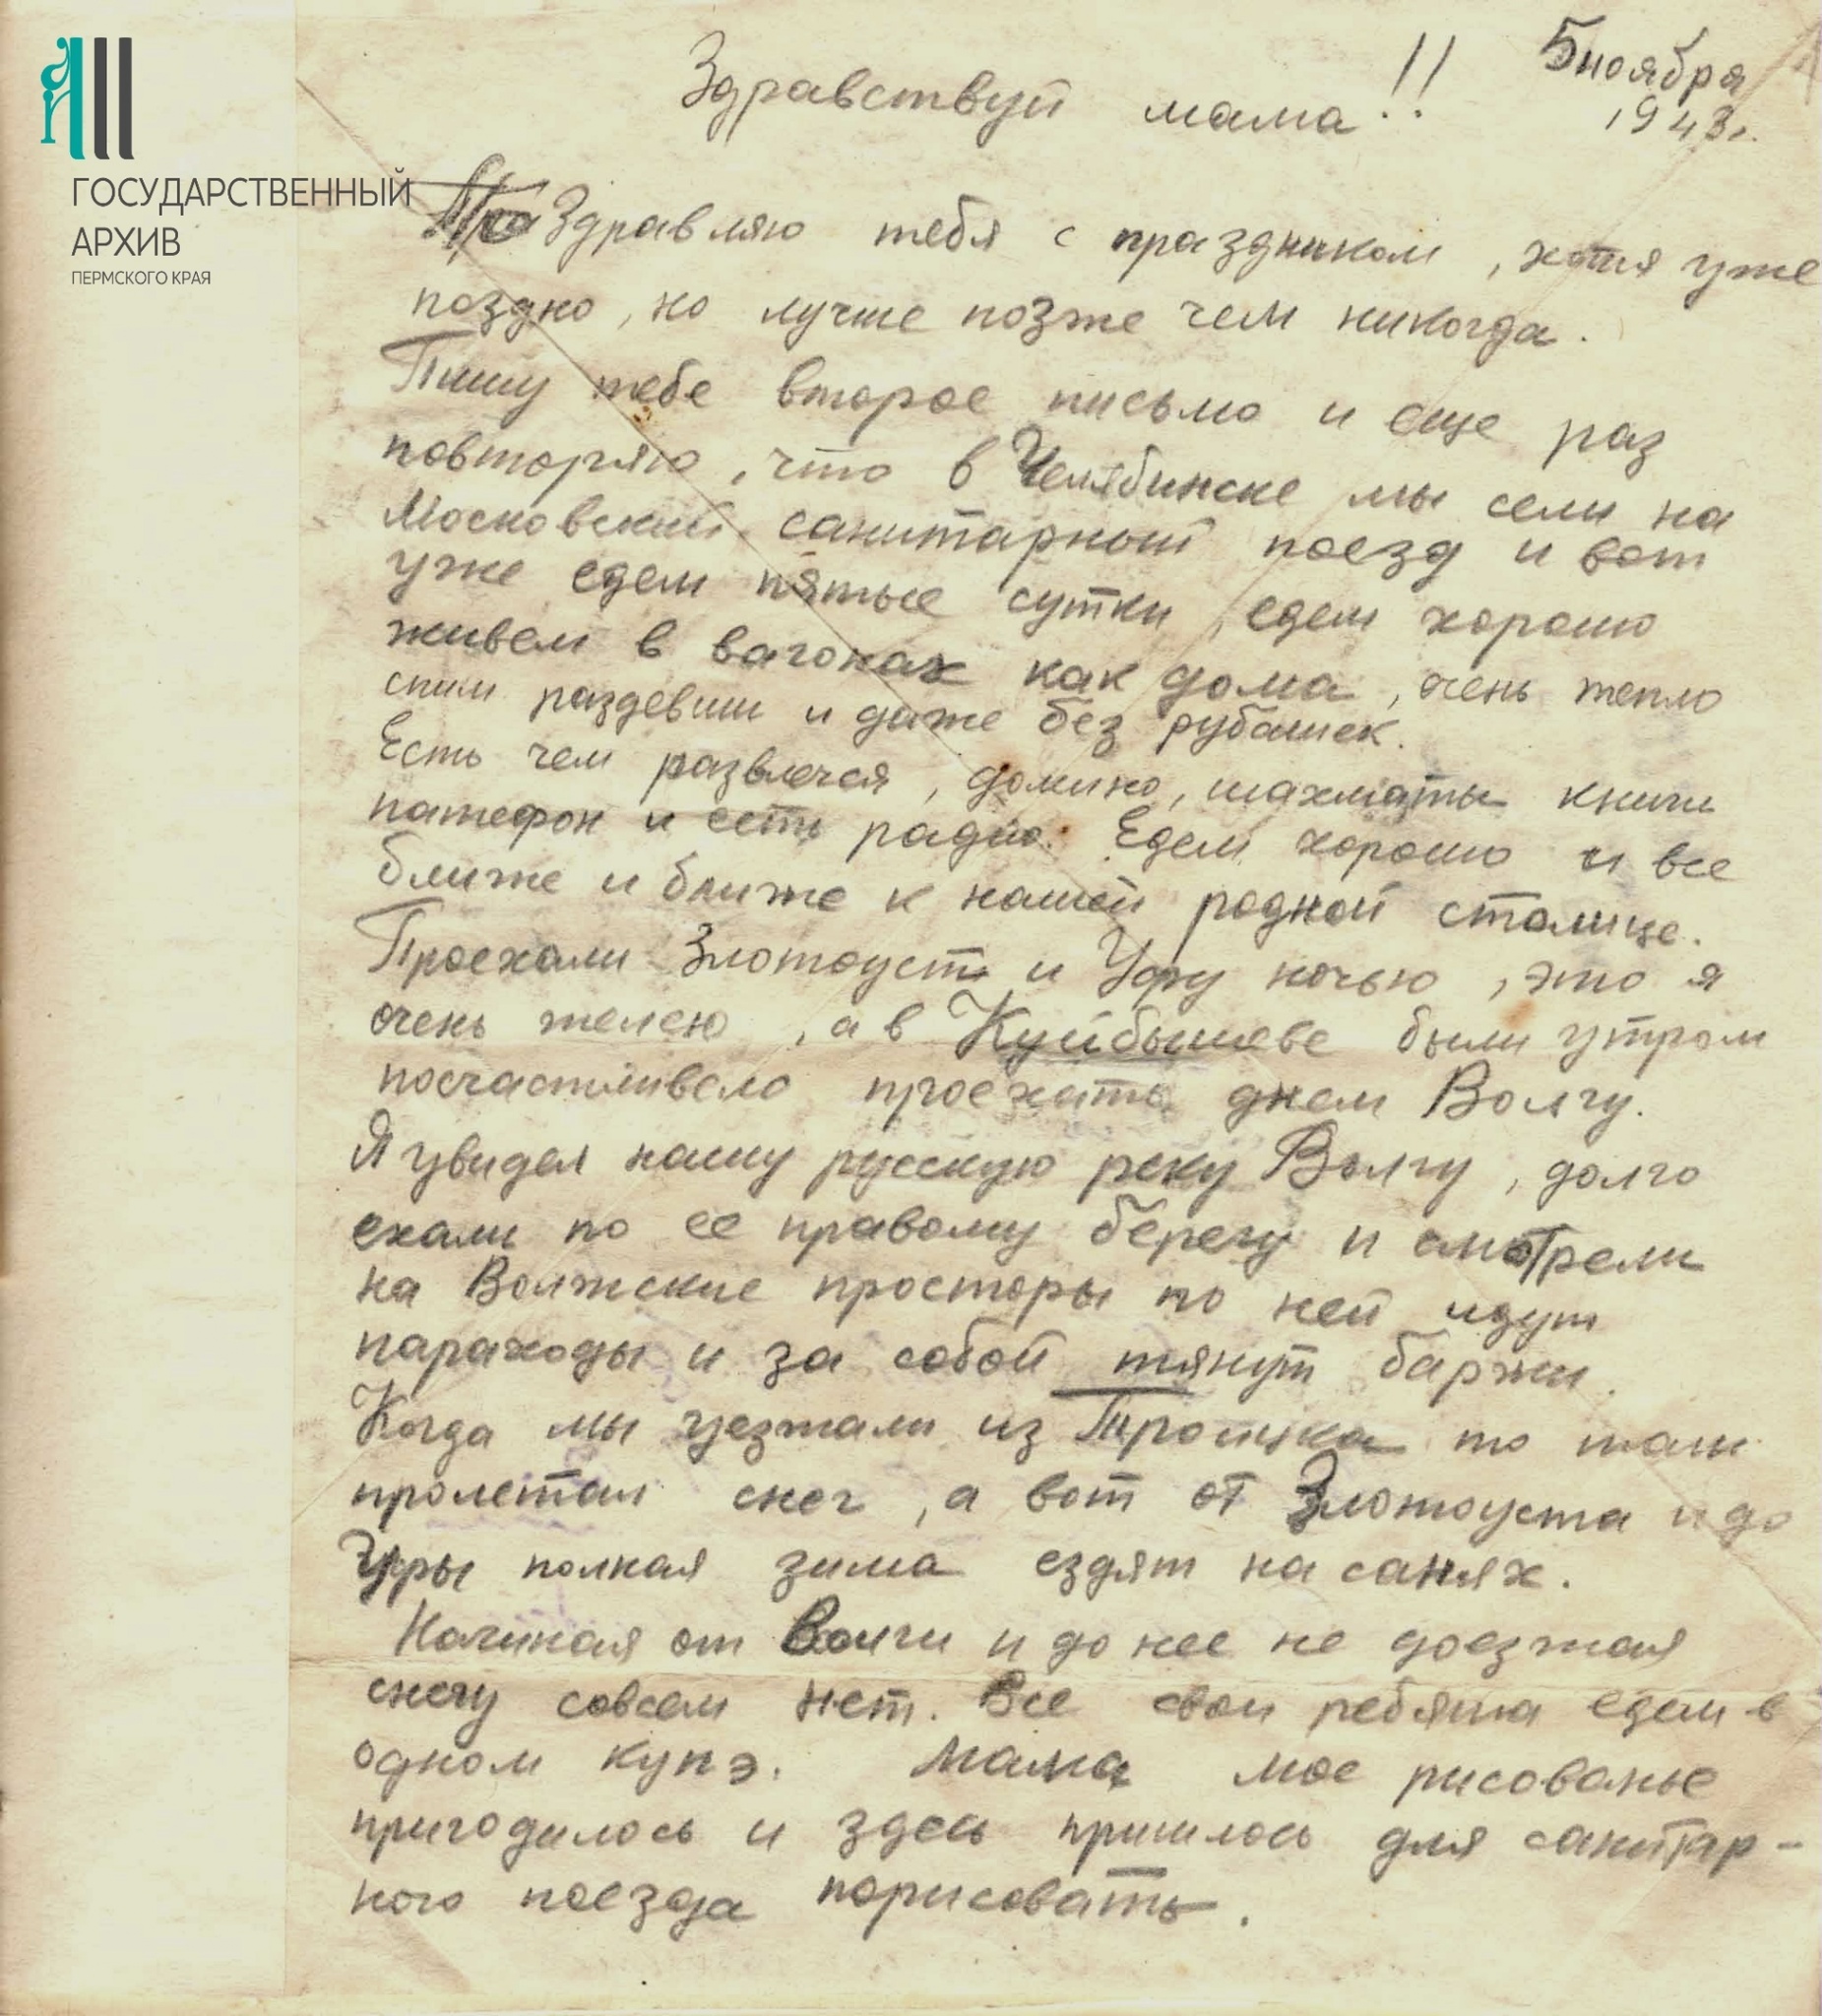 ГОСУДАРСТВЕННЫЙ
АРХИВ
ПЕРМСКОГО КРАЯ
Здравствуй мама!!
5 ноября
1943г.
Праздравляю тебя с праздником, хотя уже
поздно, но лучше позже чем никогда.
Пишу тебе второе письмо и еще раз
повторяю, что в Челябинске мы сели на
Московский санитарный поезд и вот
уже едем пятые сутки, едем хорошо
живем в вагонах как дома, очень тепло
спим раздевши и даже без рубашек.
Есть чем развлечся, домино, шахматы книги
патефон и есть радио. Едем хорошо и все
ближе и ближе к нашей родной столице.
Проехали Злотоуст и Уфу ночью, это я
очень желею, а в Куйбышеве были утром
посчастливело проехать днем Волгу.
Я увидел нашу русскую реку Волгу, долго
ехали по ее правому берегу и смотрели
на Волжские просторы по ней идут
параходы и за собой тянут баржи.
Когда мы уезжали из Троицка то там
пролетал снег, а вот от Злотоуста и до
Уфы полная зима ездят на санях.
Начиная от Волги и до нее не доезжая
снегу совсем нет. Все свои ребята едем в
одном купэ. Мама мое рисованье
пригодилось и здесь пришлось для санитар-
ного поезда порисовать.